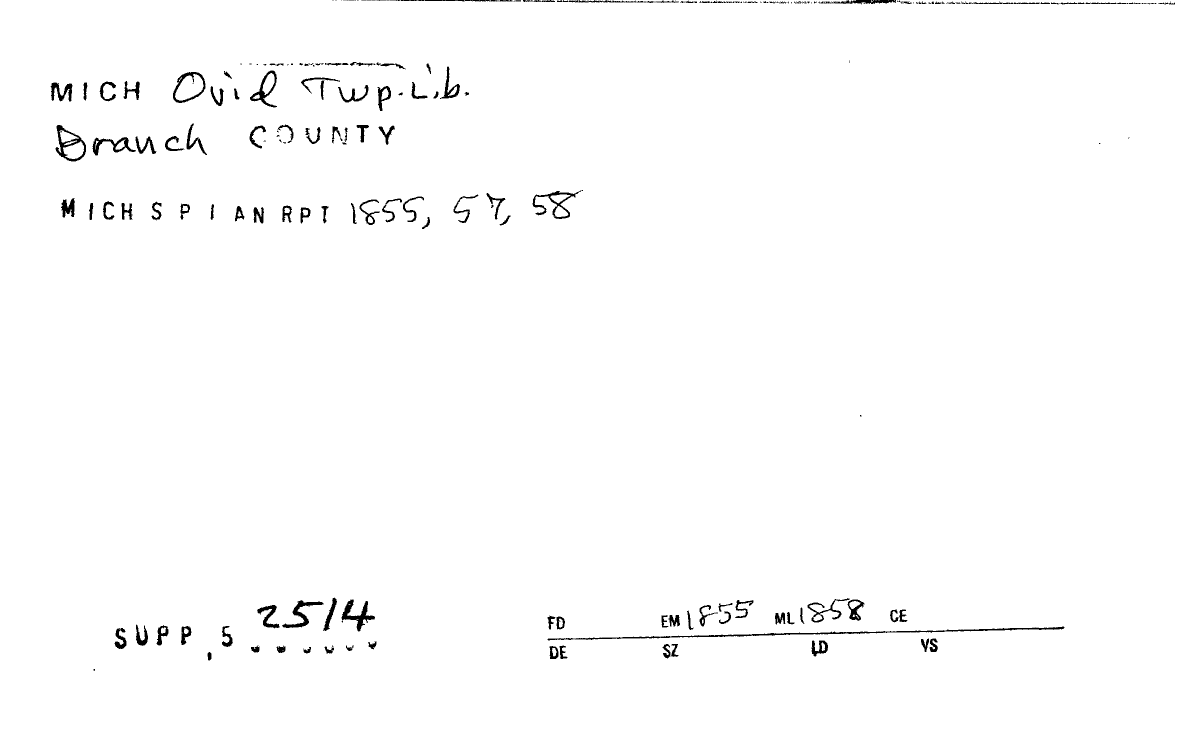 MICH Ovid Twp. Lib.
Branch COUNTY
MICH S P I AN RPT 1855, 57, 58
SUPP, 5 2514
FD EM 1855 ML 1858 CE
DE SZ LD VS